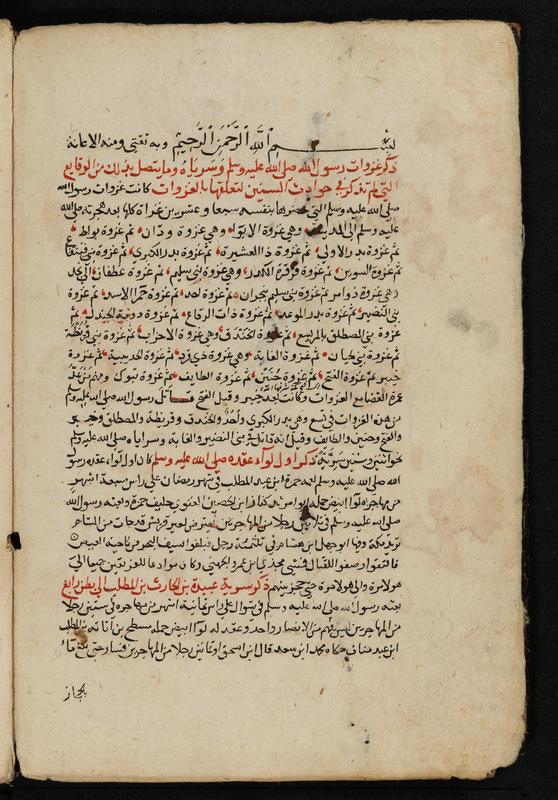 بسم الله الرحمن الرحيم وبه ثقتي ومنه الاعانة
ذكر غزوات رسول الله صلى الله عليه وسلم وسراياه وما يتصل بذلك من الوقايع
التي لم تذكر في حوادث السنين لتعلقها بالغزوات كانت غزوات رسول الله
صلى الله عليه وسلم التي حضرها بنفسه سبعا وعشرين غزاة كلها بعد هجرته صلى الله
عليه وسلم الى المدينة وهي غزوة الابوا وهي غزوة ودان ثم غزوة بواط
ثم غزوة بدر الاولى ثم غزوة ذا العشيرة ثم غزوة بدر الكبرى ثم غزوة بني قينقاع
ثم غزوة السويق ثم غزوة قرقرة الكدر وهي غزوة بني سليم ثم غزوة غطفان الى نجد
وهي غزوة ذو امر ثم غزوة بني سليم بنجران ثم غزوة احد ثم غزوة حمرا الاسد ثم غزوة
بني النضير ثم غزوة بدر الموعد ثم غزوة ذات الرقاع ثم غزوة دومة الجندل ثم
غزوة بني المصطلق بالمريسيع ثم غزوة الخندق وهي غزوة الاحزاب ثم غزوة بني قريظة
ثم غزوة بني لحيان ثم غزوة الغابة وهي غزوة ذي قرد ثم غزوة الحديبية ثم غزوة
خيبر ثم غزوة الفتح ثم غزوة حنين ثم غزوة الطايف ثم غزوة تبوك
عمرة القضا مع الغزوات وكانت بعد خيبر وقبل الفتح قاتل رسول الله صلى الله عليه وسلم
من هذه الغزوات في تسع وهي بدر الكبرى واحد والخندق وقريظة والمصطلق وخيبر
والفتح وحنين والطايف وقيل انه قاتل في بني النضير والغابة وسراياه صلى الله عليه وسلم
نحو اثنتين وستين سرية ذكر اول لواء عقده صلى الله عليه وسلم كان اول لواء عقده رسول
الله صلى الله عليه وسلم لعمه حمزة ابن عبد المطلب في شهر رمضان على راس سبعة اشهر
من مهاجره لواء ابيض حمله ابو مرثد كناز ابن الحصين الغنوي حليف حمزة وبعثه رسول الله
صلى الله عليه وسلم في ثلاثين رجلا من المهاجرين ليعترض لعير قريش قد جات من الشام
تريد مكة وفيها ابو جهل ابن هشام في ثلثمئة رجل فبلغوا سيف البحر من ناحية العيص
فالتقوا وصفوا للقتال فمشى مجدي ابن عمرو الجهني وكان موادعا للفريقين جميعا الى
هولا مرة والى هولا مرة حتى حجز بينهم ذكر سرية عبيدة بن الحارث بن المطلب الى بطن رابغ
بعثه رسول الله صلى الله عليه وسلم في شوال على راس ثمانية اشهر من مهاجره في ستين رجلا
من المهاجرين ليس فيهم من الانصار واحد وعقد له لواء ابيض حمله مسطح بن اثاثة بن المطلب
ابن عبد مناف حكاه محمد ابن سعد قال ابن اسحق او ثمانين رجلا من المهاجرين فسار حتى بلغ ماء
بالحجاز